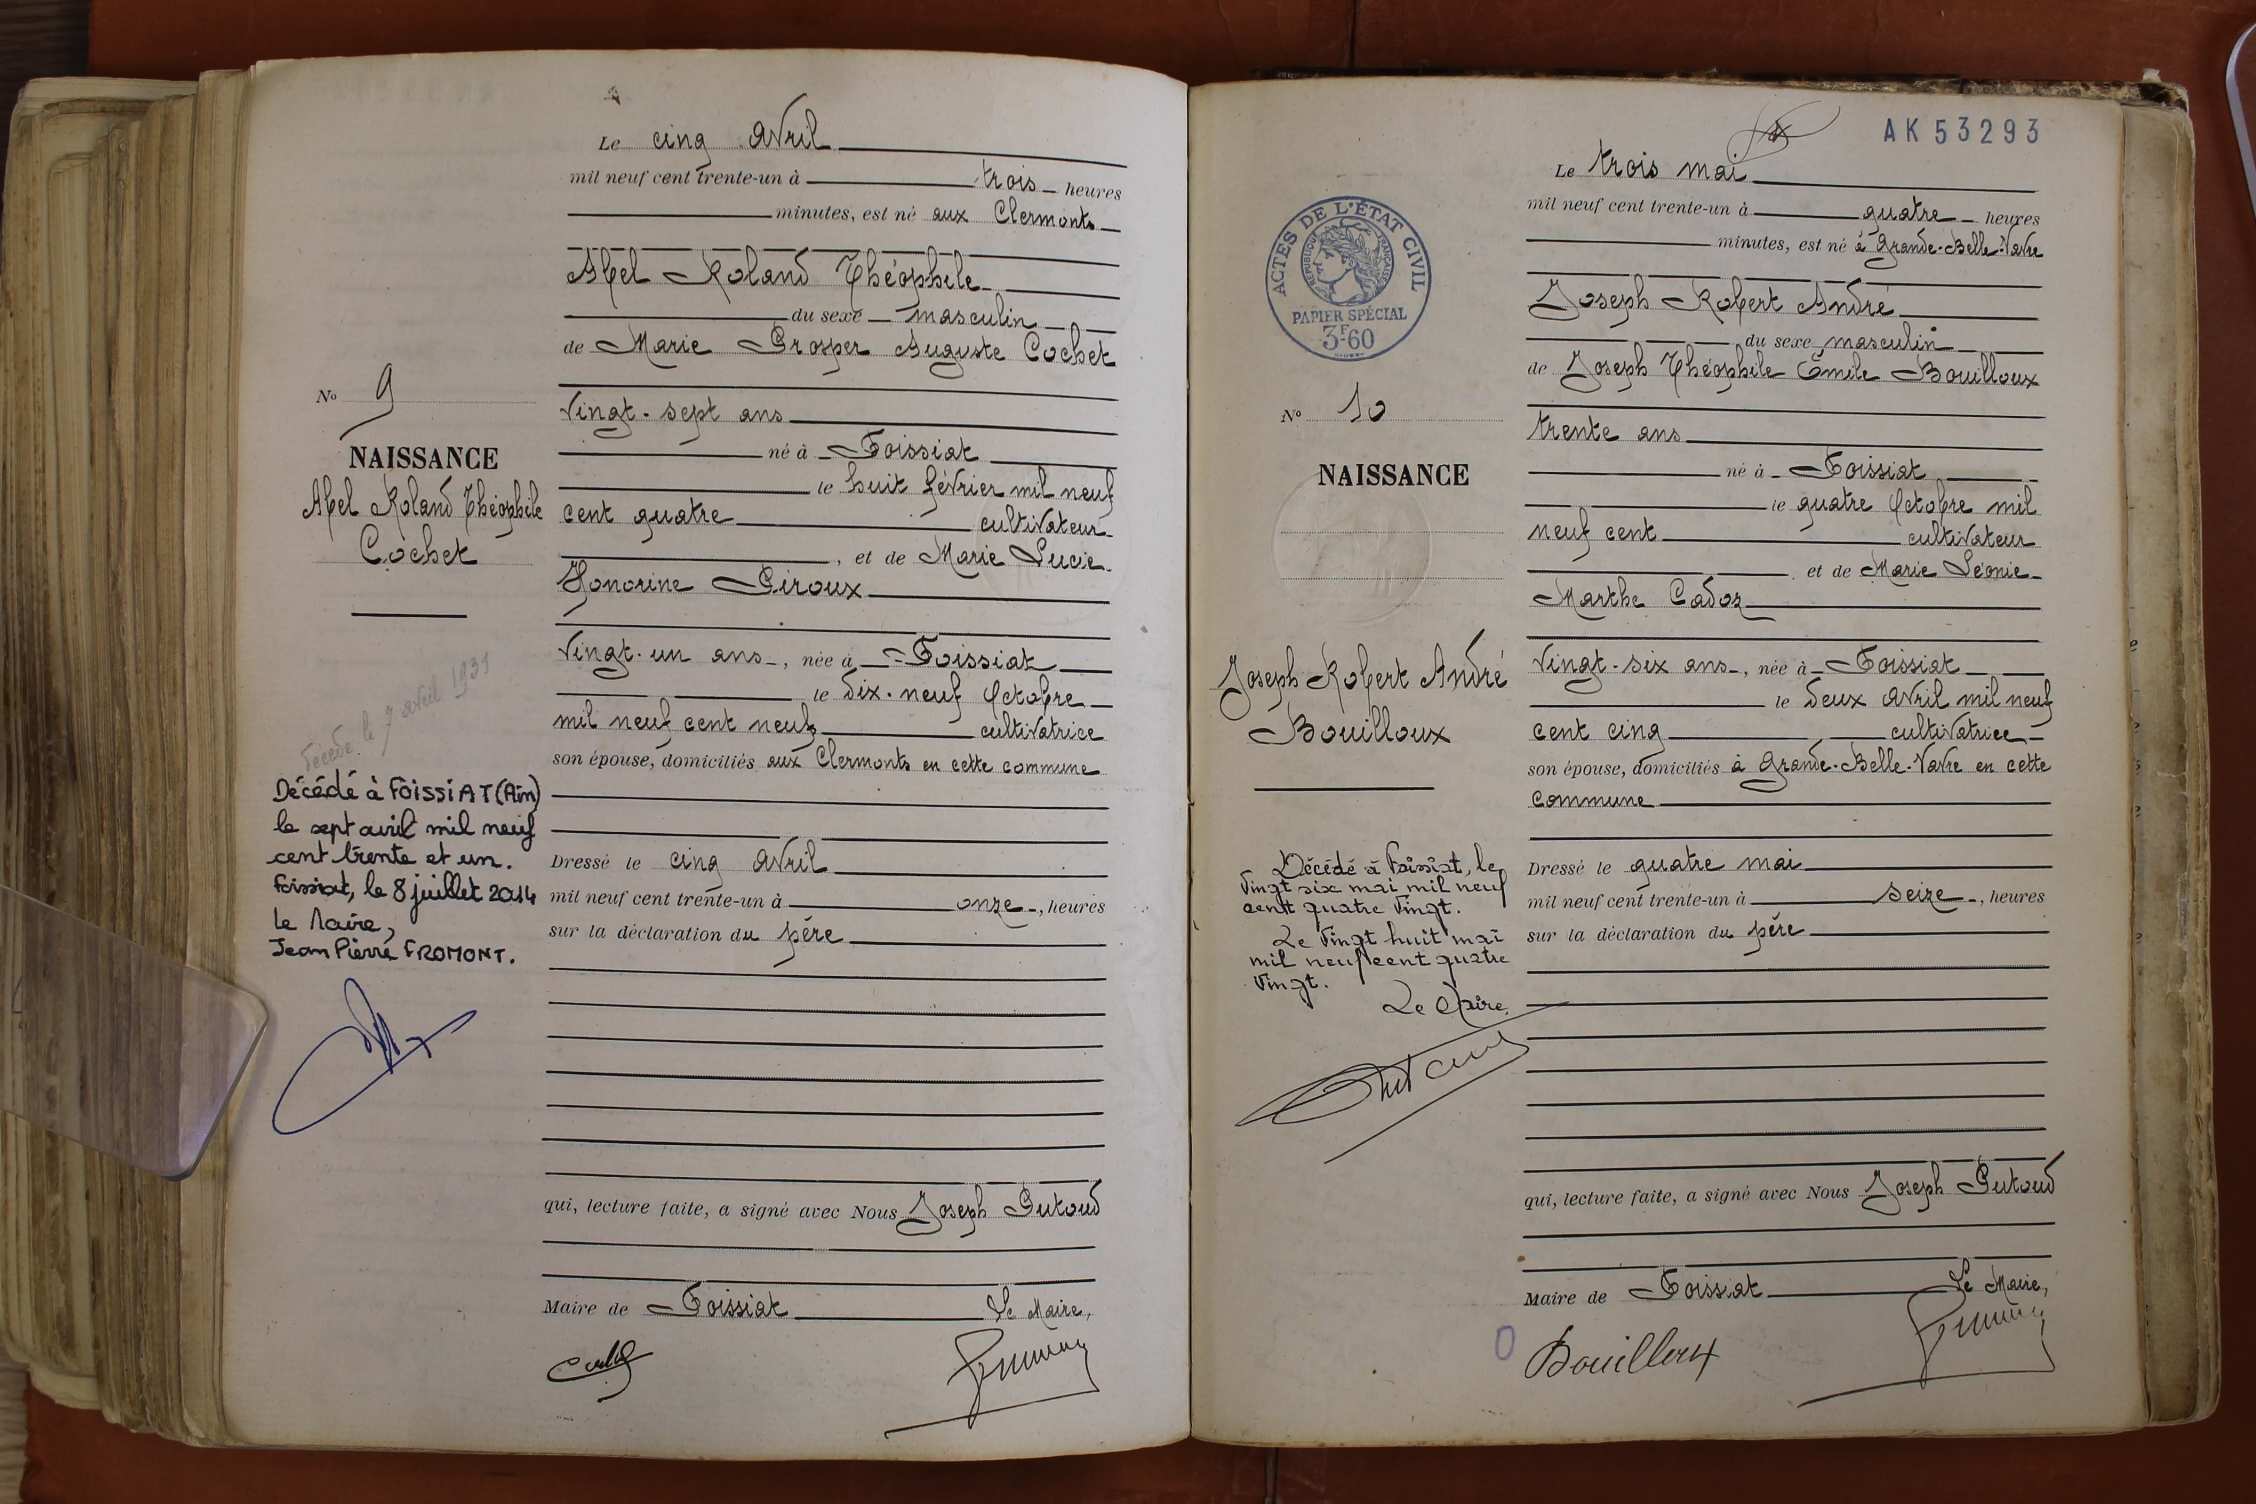 Le cinq avril
mil neuf cent trente-un à trois heures
minutes, est né aux Clermonts
Abel Roland Théophile
du sexe masculin
de Marie Prosper Auguste Cochet
vingt-sept ans
né à Foissiat
le huit février mil neuf
cent quatre cultivateur
, et de Marie Lucie
Honorine Piroux
vingt-un ans, née à Foissiat
le dix-neuf octobre
mil neuf cent neuf cultivatrice
son épouse, domiciliés aux Clermonts en cette commune
Dressé le cinq avril
mil neuf cent trente-un à onze, heures
sur la déclaration du père
qui, lecture faite, a signé avec Nous Joseph Putoud
Maire de Foissiat Le Maire,
No 9
NAISSANCE
Abel Roland Théophile
Cochet
décédé le 7 avril 1931
Décédé à FOISSIAT (Ain)
le sept avril mil neuf
cent trente et un.
Foissiat, le 8 juillet 2014
Le Maire,
Jean Pierre FROMONT.
AK 53293
Le trois mai
mil neuf cent trente-un à quatre heures
minutes, est né à Grande-Belle-Vavre
Joseph Robert André
du sexe masculin
de Joseph Théophile Émile Bouilloux
trente ans
né à Foissiat
le quatre octobre mil
neuf cent cultivateur
, et de Marie Léonie
Marthe Cadoz
vingt-six ans, née à Foissiat
le deux avril mil neuf
cent cinq cultivatrice
son épouse, domiciliés à Grande-Belle-Vavre en cette
commune
Dressé le quatre mai
mil neuf cent trente-un à seize, heures
sur la déclaration du père
qui, lecture faite, a signé avec Nous Joseph Putoud
Maire de Foissiat Le Maire,
Bouilloux
ACTES DE L'ÉTAT CIVIL
RÉPUBLIQUE FRANÇAISE
PAPIER SPÉCIAL
3F60
No 10
NAISSANCE
Joseph Robert André
Bouilloux
Décédé à Foissiat, le
vingt six mai mil neuf
cent quatre vingt.
Le vingt huit mai
mil neuf cent quatre
vingt.
Le Maire.